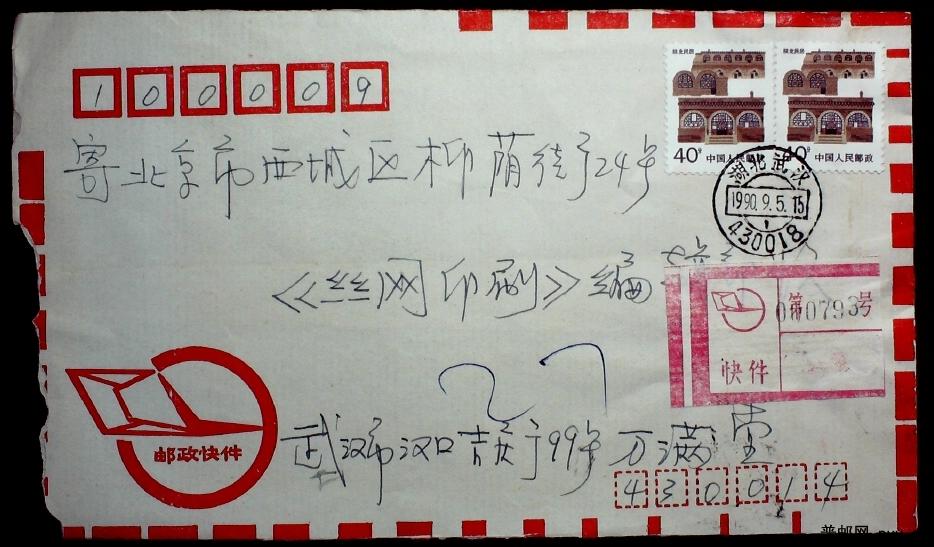 陕北民居
陕北民居
40分
中国人民邮政
40分
中国人民邮政
100009
湖北武汉
1990.9.5.15
430018
寄北京市西城区柳荫街24号
《丝网印刷》编
第000793号
快件
邮政快件
27
武汉市汉口吉庆街99号万满
430014
普邮网